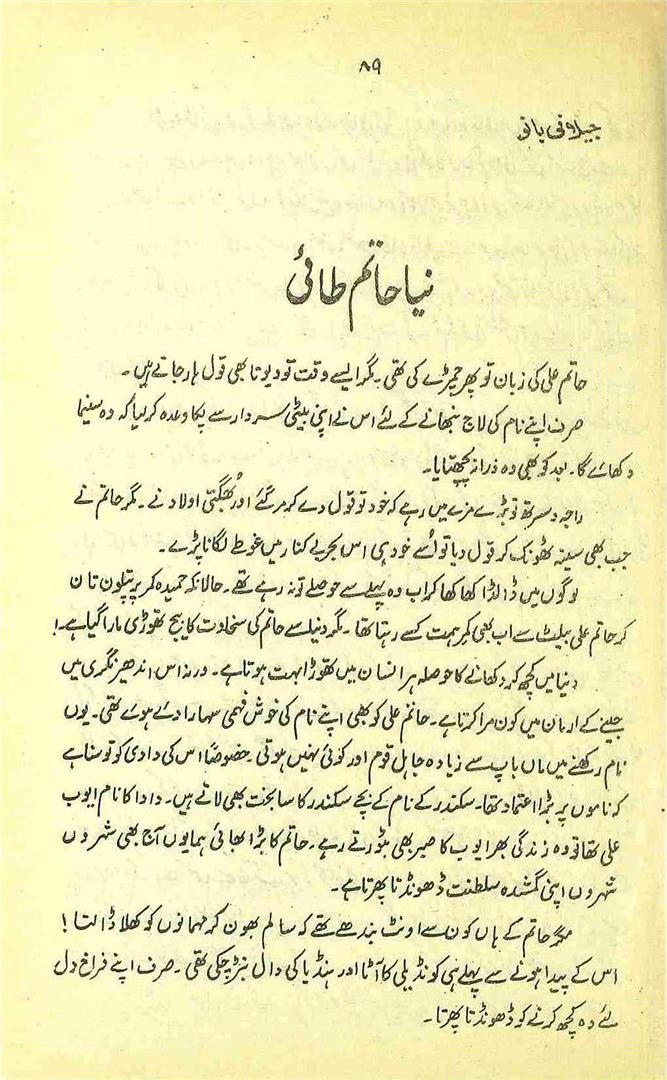 ۸۹
جیلانی بانو
نیا حاتم طائی
حاتم علی کی زبان تو پھر چمڑے کی تھی۔ مگر ایسے وقت تو دیوتا بھی قول ہار جاتے ہیں۔
صرف اپنے نام کی لاج نبھانے کے لئے اس نے اپنی بیٹی سردار سے پکا وعدہ کر لیا کہ وہ سنیما
دکھائے گا۔ بعد کو بھی وہ ذرا نہ پچھتایا۔
راجہ دسرتھ تو بڑے مزے میں رہے کہ خود تو قول دے کر مر گئے اور بُھگتی اولاد نے۔ مگر حاتم نے
جب بھی سینہ ٹھونک کر قول دیا تو اُسے خود ہی اس بحرِ بے کنار میں غوطے لگانا پڑے۔
لوگوں میں ڈالڈا کھا کھا کر اب وہ پہلے سے حوصلے تو نہ رہے تھے۔ حالانکہ خمیدہ کمر پر پتلون تان
کر حاتم علی بیلٹ سے اب بھی کمر ہمت کسے رہتا تھا۔ مگر دنیا سے حاتم کی سخاوت کا بیج تھوڑی مارا گیا ہے۔!
دنیا میں کچھ کر دکھانے کا حوصلہ ہر انسان میں تھوڑا بہت ہوتا ہے۔ ورنہ اس اندھیر نگری میں
جینے کے ارمان میں کون مرا کرتا ہے۔ حاتم علی کو بھی اپنے نام کی خوش فہمی سہارا دئے ہوئے تھی۔ یوں
نام رکھنے میں ماں باپ سے زیادہ جاہل قوم اور کوئی نہیں ہوتی۔ خصوصاً اس کی دادی کو تو سنا ہے
کہ ناموں پر بڑا اعتماد تھا۔ سکندر کے نام کے بچے سکندر کا سا بخت بھی لاتے ہیں۔ دادا کا نام ایوب
علی تھا تو وہ زندگی بھر ایوب کا صبر بھی بٹورتے رہے۔ حاتم کا بڑا بھائی ہمایوں آج بھی شہروں
شہروں اپنی گمشدہ سلطنت ڈھونڈتا پھرتا ہے۔
مگر حاتم کے ہاں کون سے اونٹ بندھے تھے کہ سالم بھون کر مہمانوں کو کھلا ڈالتا!
اس کے پیدا ہونے سے پہلے ہی کونڈیلی کا آٹا اور ہنڈیا کی دال نبڑ چکی تھی۔ صرف اپنے فراخ دل
لئے وہ کچھ کرنے کو ڈھونڈتا پھرتا۔